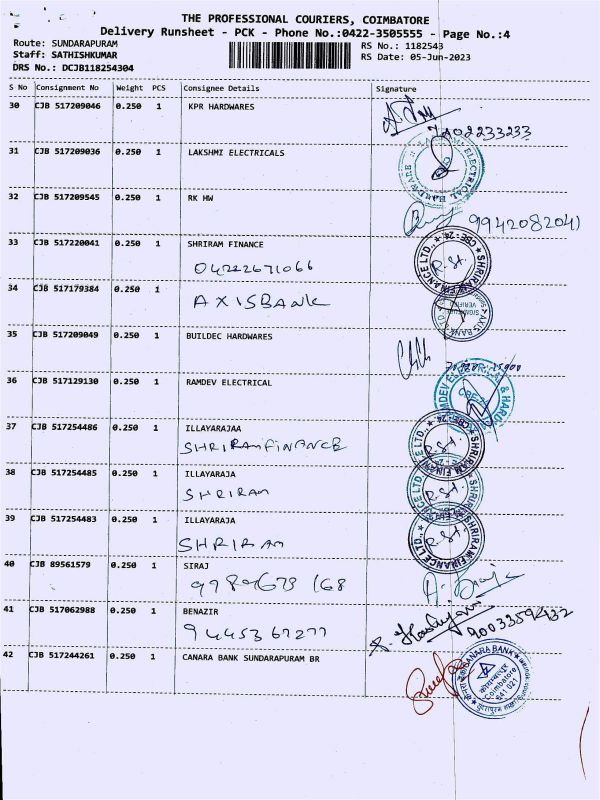 THE PROFESSIONAL COURIERS, COIMBATORE
Delivery Runsheet - PCK - Phone No.:0422-3505555 - Page No.:4
Route: SUNDARAPURAM RS No.: 1182543
Staff: SATHISHKUMAR RS Date: 05-Jun-2023
DRS No.: DCJB118254304
S No Consignment No Weight PCS Consignee Details Signature
30 CJB 517209046 0.250 1 KPR HARDWARES
7402233233
31 CJB 517209036 0.250 1 LAKSHMI ELECTRICALS
ELECTRICAL HARDWARE
32 CJB 517209545 0.250 1 RK HW
9942082041
33 CJB 517220041 0.250 1 SHRIRAM FINANCE
04222671066
SHRIRAM FINANCE LTD., CBE-24
R. St.
34 CJB 517179384 0.250 1
AXISBANK
AXIS BANK
SIGNATURE VERIFIED
35 CJB 517209049 0.250 1 BUILDEC HARDWARES
36 CJB 517129130 0.250 1 RAMDEV ELECTRICAL
RAMDEV
37 CJB 517254486 0.250 1 ILLAYARAJAA
SHRIRAMFINANCE
SHRIRAM FINANCE LTD., CBE-24
R. St.
38 CJB 517254485 0.250 1 ILLAYARAJA
SHRIRAM
R. St.
39 CJB 517254483 0.250 1 ILLAYARAJA
SHRIRAM
SHRIRAM FINANCE LTD.,
R. St.
40 CJB 89561579 0.250 1 SIRAJ
9789673 168
41 CJB 517062988 0.250 1 BENAZIR
9445367277
9003359432
42 CJB 517244261 0.250 1 CANARA BANK SUNDARAPURAM BR
CANARA BANK
कोयम्बत्तूर
Coimbatore
641 021